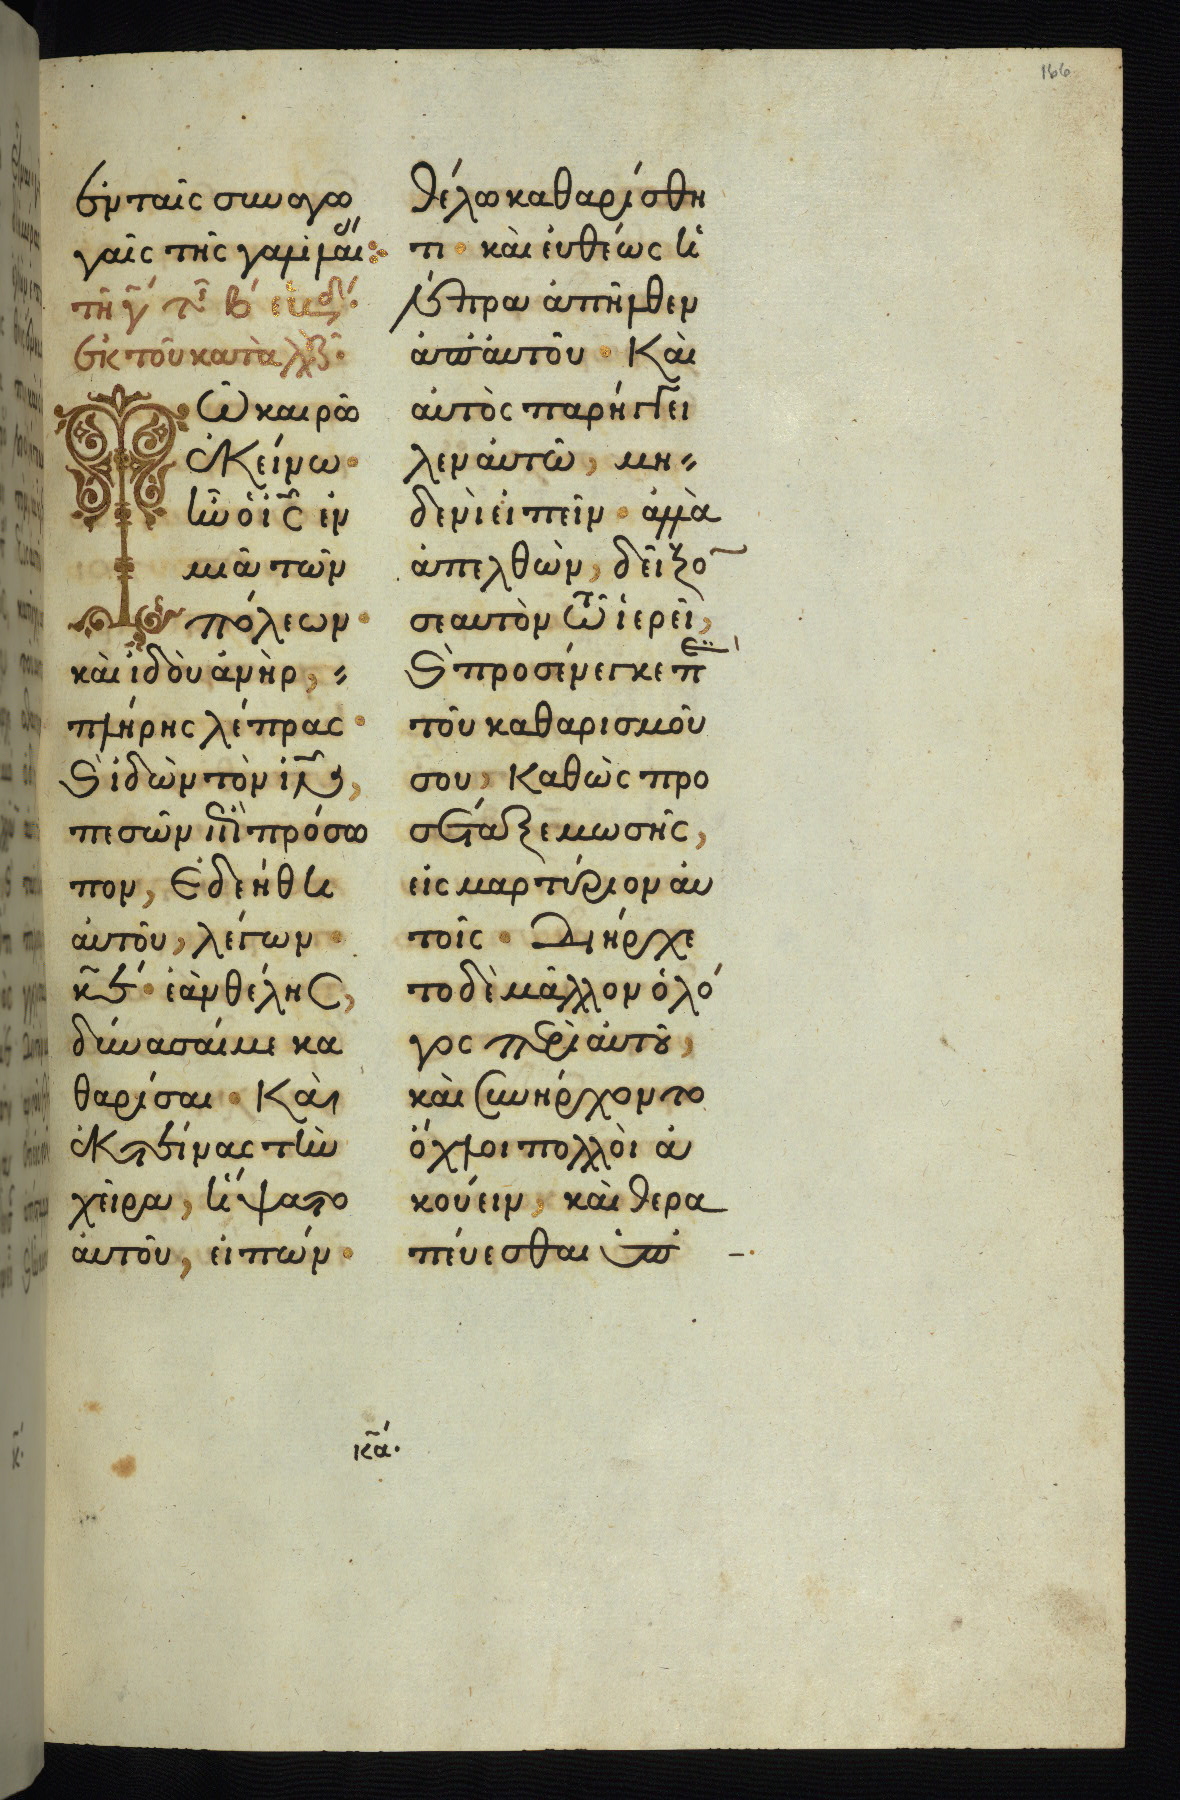 166
ἐν ταῖς συναγω
γαῖς τῆς γαλιλαί
τῇ γ τῆς β ἑβδ
ἐκ τοῦ κατὰ λουκᾶν
Τῶ καιρῶ
ἐκείνω·
ἦν ὁ ις ἐν
μιᾶ τῶν
πόλεων·
καὶ ἰδοὺ ἀνὴρ,
πλήρης λέπρας·
καὶ ἰδὼν τὸν ιν,
πεσὼν ἐπὶ πρόσω
πον, ἐδεήθη
αὐτοῦ, λέγων·
κε· ἐὰν θέλης,
δύνασαί με κα
θαρίσαι· Καὶ
ἐκτείνας τὴν
χεῖρα, ἥψατο
αὐτοῦ, εἰπών·
θέλω καθαρίσθη
τι· καὶ εὐθέως ἡ
λέπρα ἀπῆλθεν
ἀπ' αὐτοῦ· Καὶ
αὐτὸς παρήγγει
λεν αὐτῶ, μη
δενὶ εἰπεῖν· ἀλλὰ
ἀπελθὼν, δεῖξο
σεαυτὸν τῶ ἱερεῖ,
καὶ προσένεγκε περὶ
τοῦ καθαρισμοῦ
σου, καθὼς προ
σέταξε μωσῆς,
εἰς μαρτύριον αὐ
τοῖς· Διήρχε
το δὲ μᾶλλον ὁ λό
γος περὶ αὐτοῦ,
καὶ συνήρχοντο
ὄχλοι πολλοὶ ἀ
κούειν, καὶ θερα
πεύεσθαι ὑπ'
κα.